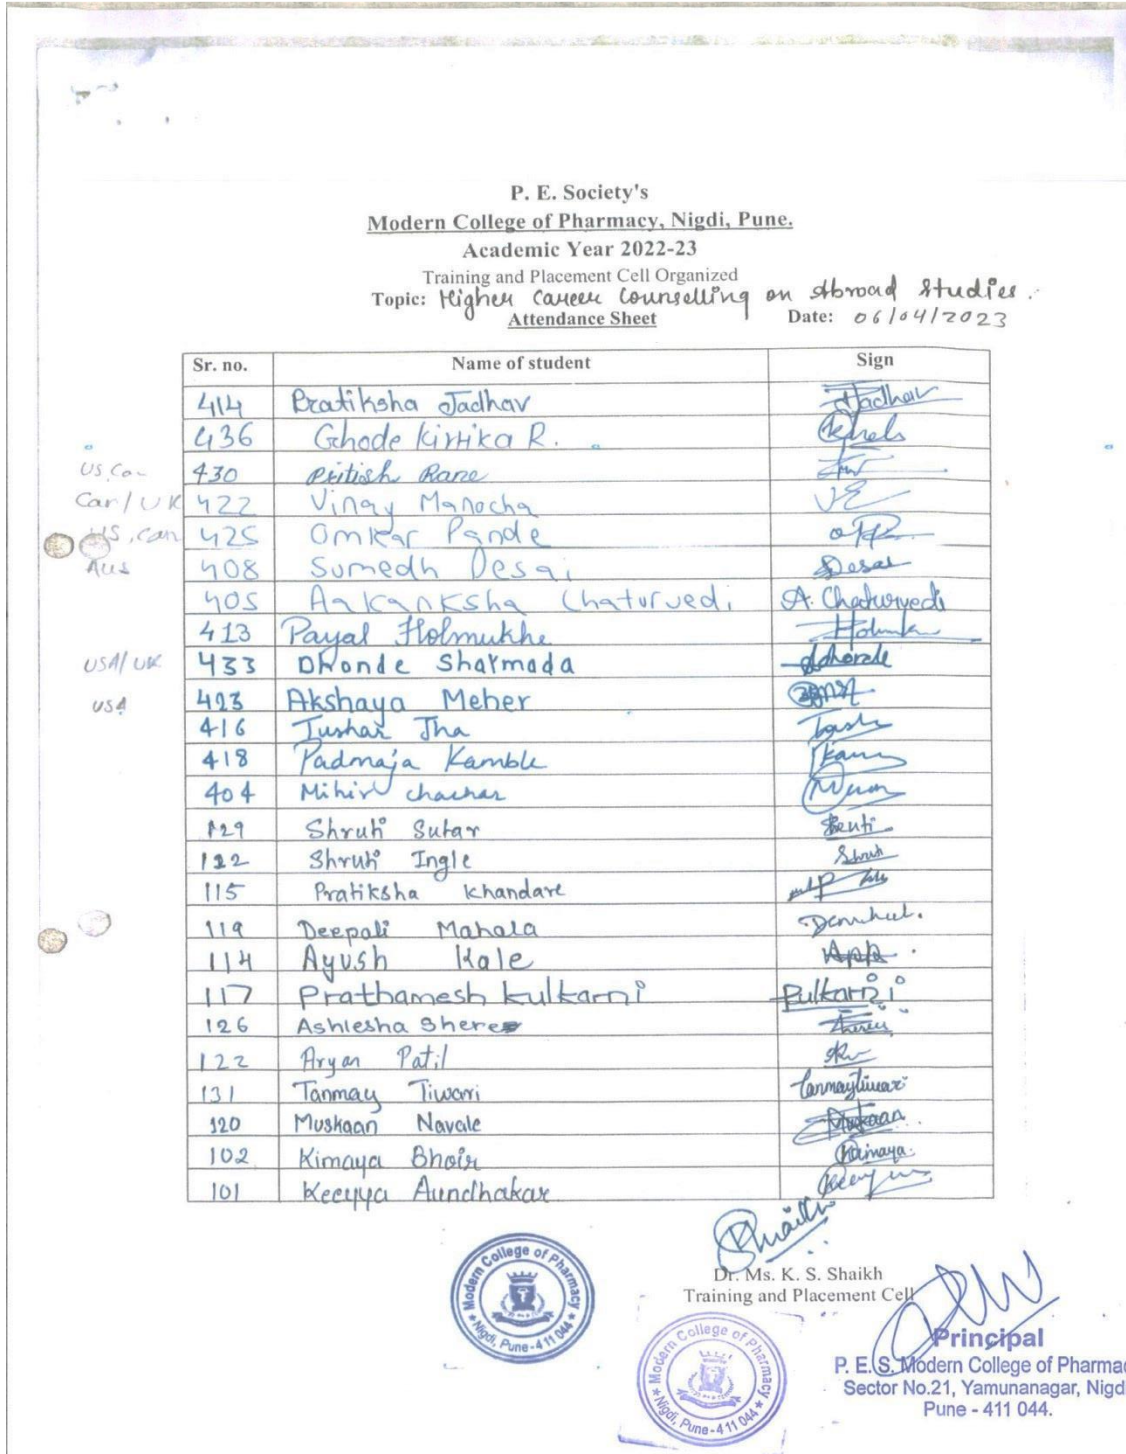 P. E. Society's
Modern College of Pharmacy, Nigdi, Pune.
Academic Year 2022-23
Training and Placement Cell Organized
Topic: Higher Career Counselling on Abroad Studies.
Attendance Sheet Date: 06/04/2023
Sr. no. Name of student Sign
414 Pratiksha Jadhav Jadhav
436 Ghode Kirtika R.
US, Can 430 Pritish Rane
Can/UK 422 Vinay Manocha
US, Can 425 Omkar Pande
Aus 408 Sumedh Desai Desai
405 Aakanksha Chaturvedi A. Chaturvedi
413 Payal Holmukhe
USA/UK 433 Dhonde Sharmada
USA 423 Akshaya Meher
416 Tushar Jha
418 Padmaja Kamble
404 Mihir
129 Shruti Sutar
112 Shruti Ingle
115 Pratiksha Khandare
119 Deepali Mahala
114 Ayush Kale
117 Prathamesh Kulkarni Pulkarni
126 Ashlesha Shere
122 Aryan Patil
131 Tanmay Tiwari Tanmaytiwari
120 Muskaan Navale Muskaan
102 Kimaya Bhoir Kimaya
101 Aundhakar
Shaikh
Dr. Ms. K. S. Shaikh
Training and Placement Cell
Modern College of Pharmacy
Nigdi, Pune-411 044
Modern College of Pharmacy
Nigdi, Pune-411 044
Principal
P. E. S. Modern College of Pharmac
Sector No.21, Yamunanagar, Nigd
Pune - 411 044.